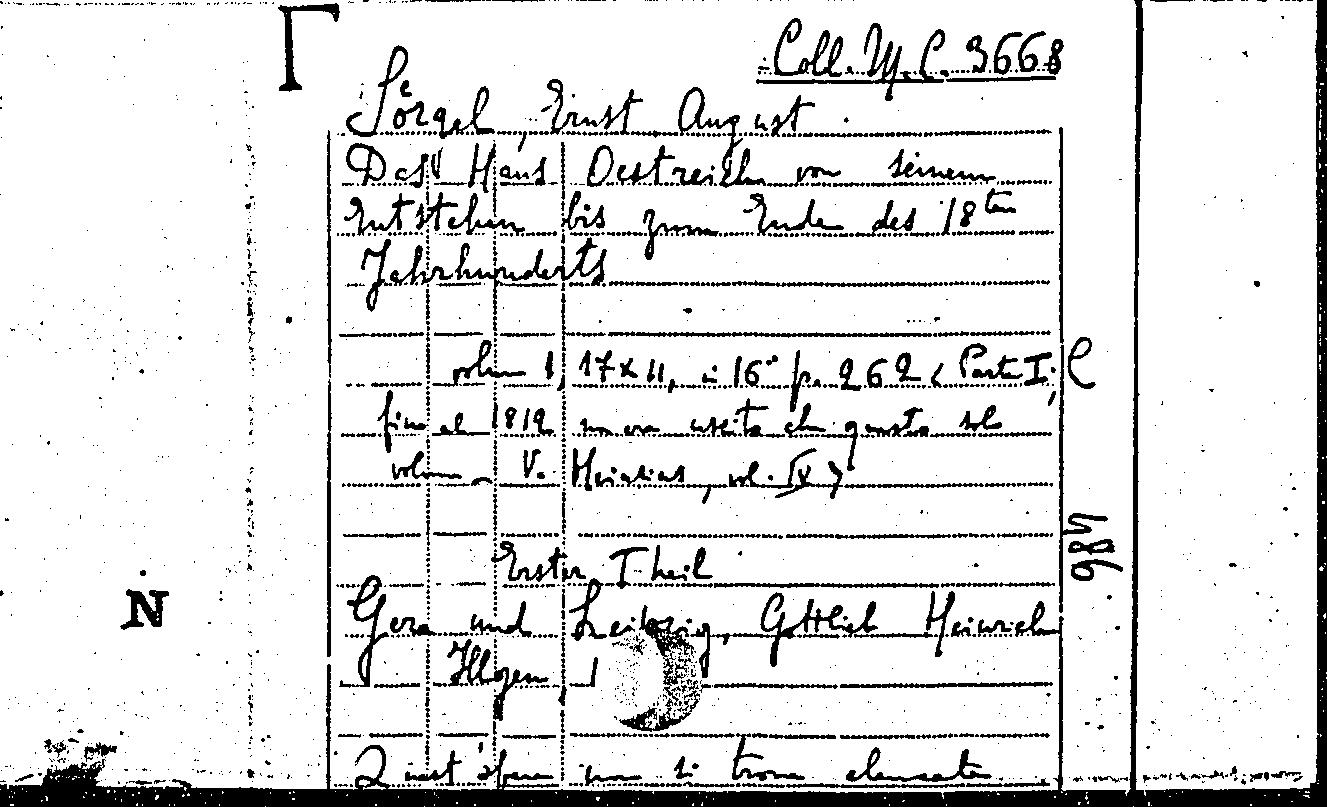 Coll. M.C. 3668
Sörgel, Ernst August.
Das Haus Oestreich von seinem
Entstehen bis zum Ende des 18ten
Jahrhunderts
volume 1, 17x11, in 16° p. 262 (Parte I;
fino al 1812 non era uscito che questo solo
volume. V. Heinsius, vol. IV)
987
Erster Theil
Gera und Leipzig, Gottlieb Heinrich
Illgen, 1
Quest'opera non si trova elencata
N